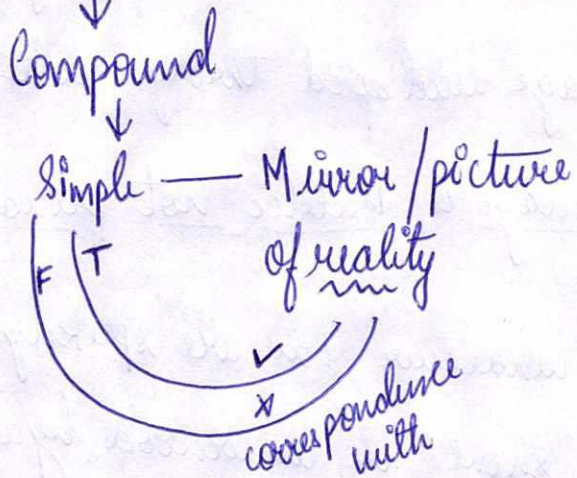 Compound
Simple — Mirror / picture
of reality
F T
✓
x
correspondence
with